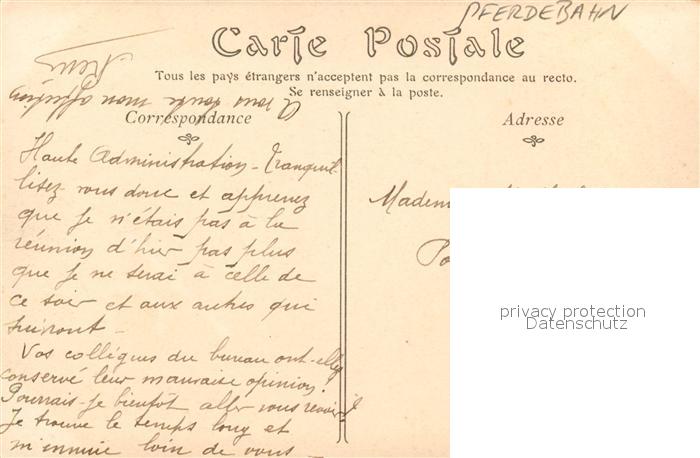 PFERDEBAHN
Carte Postale
Tous les pays étrangers n'acceptent pas la correspondance au recto.
Se renseigner à la poste.
Correspondance
Adresse
Haute Administration - Tranquil-
lisez-vous donc et apprenez
que je n'étais pas à la
réunion d'hier pas plus
que je ne serai à celle de
ce soir et aux autres qui
suivront -
Vos collègues du bureau ont-elles
conservé leur mauvaise opinion?
Pourrais-je bientôt aller vous revoir?
Je trouve le temps long et
m'ennuie loin de vous -
A vous toute mon affection
Madem
Po
privacy protection
Datenschutz